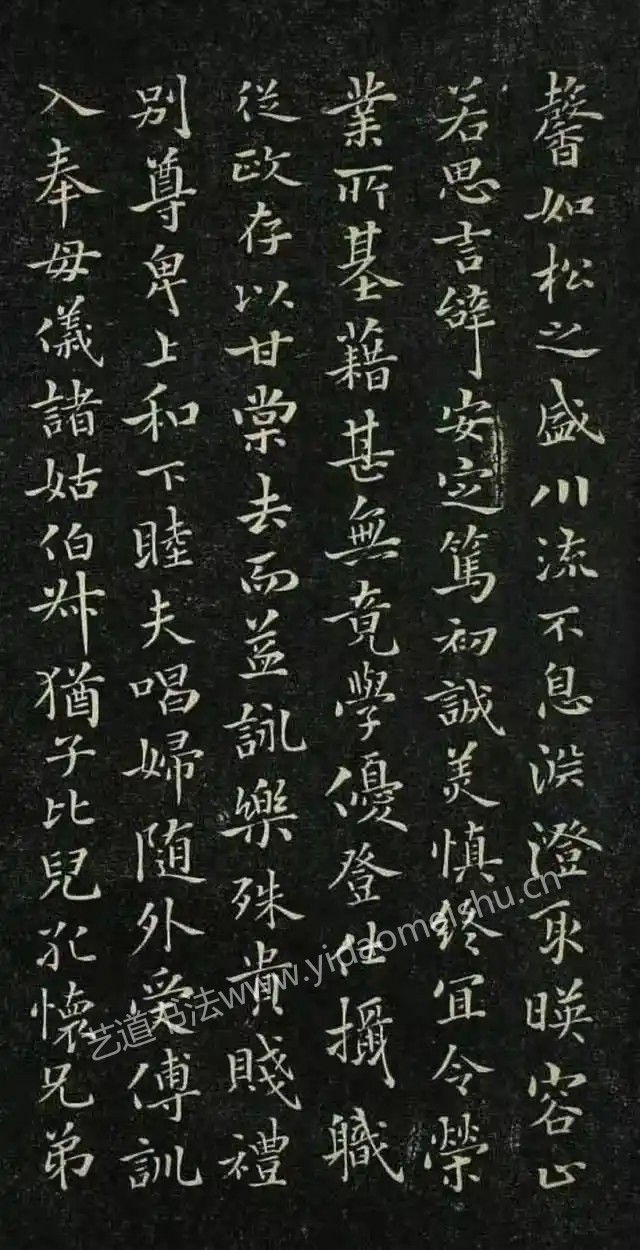 馨如松之盛川流不息渕澄取暎容止
若思言辭安定篤初誠美慎終宜令榮
業所基藉甚無竟學優登仕攝職
從政存以甘棠去而益詠樂殊貴賤禮
別尊卑上和下睦夫唱婦隨外受傅訓
入奉母儀諸姑伯叔猶子比兒孔懷兄弟
艺道书法www.yidaomeishu.cn